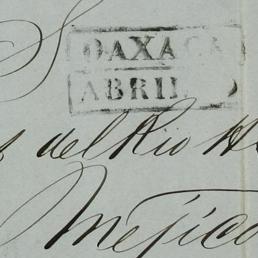 OAXACA
ABRIL
del Rio
Mejico